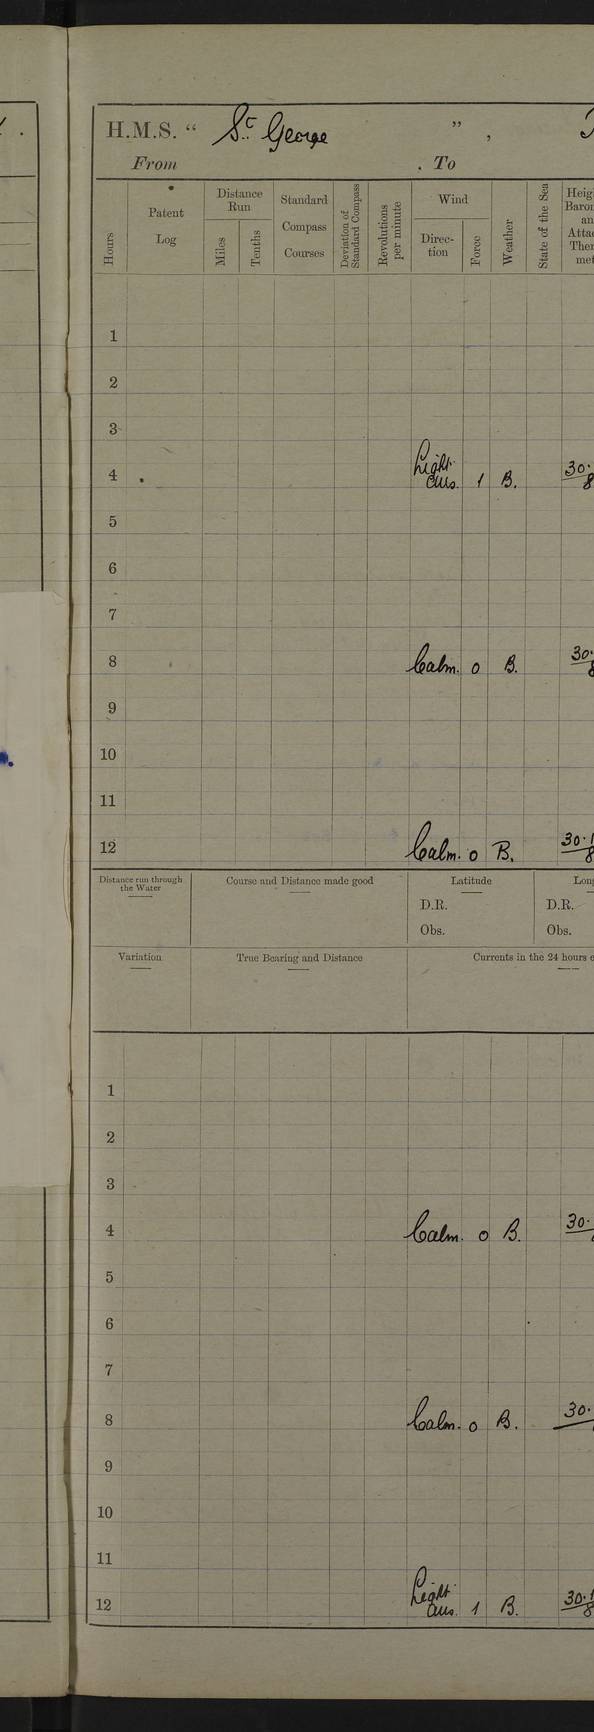 H.M.S. “ St. George ” ,
From . To
Hours
Patent Log
Distance Run
Miles
Tenths
Standard Compass Courses
Deviation of Standard Compass
Revolutions per minute
Wind
Direc-tion
Force
Weather
State of the Sea
1
2
3
4 Light airs. 1 B. 30.
5
6
7
8 Calm. 0 B. 30.
9
10
11
12 Calm. 0 B. 30.1
Distance run through the Water
Course and Distance made good
Latitude
D.R.
Obs.
D.R.
Obs.
Variation
True Bearing and Distance
Currents in the 24 hours
1
2
3
4 Calm. 0 B. 30.
5
6
7
8 Calm. 0 B. 30.
9
10
11
12 Light airs. 1 B. 30.1